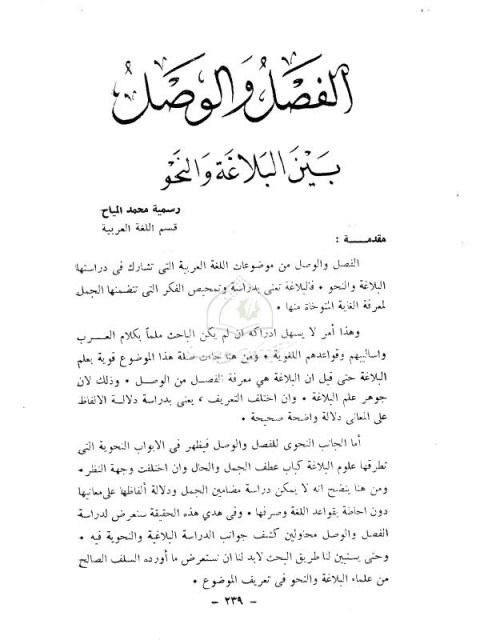 الفَصْلُ وَالوَصْلُ
بَيْنَ البَلاغَة وَالنَحْو
رسمية محمد المياح
قسم اللغة العربية
مقدمــــة :
الفصل والوصل من موضوعات اللغة العربية التى تشارك فى دراستها
البلاغة والنحو • فالبلاغة تعنى بدراسة وتمحيص الفكر التى تتضمنها الجمل
لمعرفة الغاية المتوخاة منها •
وهذا أمر لا يسهل ادراكه ان لم يكن الباحث ملماً بكلام العــرب
واساليبهم وقواعدهم اللغوية • ومن هنا جاءت صلة هذا الموضوع قوية بعلم
البلاغة حتى قيل ان البلاغة هي معرفة الفصــل من الوصــل • وذلك لان
جوهر علم البلاغة • وان اختلف التعريف ، يعنى بدراسة دلالـة الالفاظ
على المعانى دلالة واضحة صحيحة •
أما الجانب النحوى للفصل والوصل فيظهر فى الابواب النحوية التى
تطرقها علوم البلاغة كباب عطف الجمل والحال وان اختلفت وجهة النظر •
ومن هنا يتضح انه لا يمكن دراسة مضامين الجمل ودلالة ألفاظها على معانيها
دون احاطة بقواعد اللغة وصرفها • وفى هدي هذه الحقيقة سنعرض لدراسة
الفصل والوصل محاولين كشف جوانب الدراسة البلاغية والنحوية فيه •
وحتى يستبين لنا طريق البحث لابد لنا ان نستعرض ما أورده السلف الصالح
من علماء البلاغة والنحو فى تعريف الموضوع •
- ٢٣٩ -